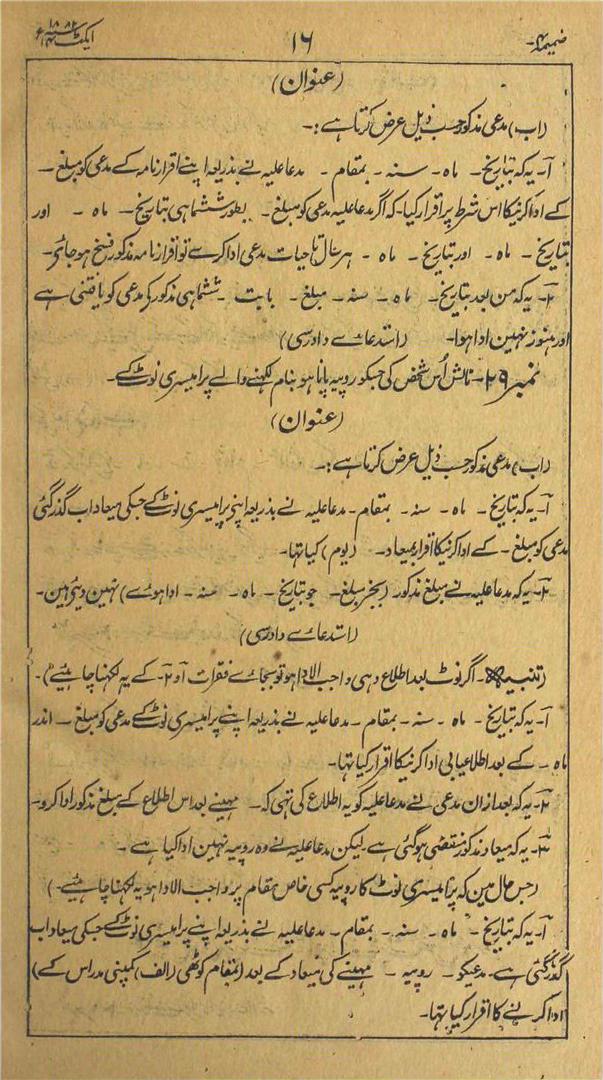 ضمیمہ ۴- ۱۶ ایکٹ ۱۴ سنہ ۱۸۸۲ع
(عنوان)
(اب) مدعی مذکور حسب ذیل عرض کرتا ہے:-
۱- یہ کہ بتاریخ - ماہ - سنہ - بمقام - مدعا علیہ نے بذریعہ اپنے اقرارنامہ کے مدعی کو مبلغ -
کے ادا کرنیکا اس شرط پر اقرار کیا - کہ اگر مدعا علیہ مدعی کو مبلغ - بطور ششماہی بتاریخ - ماہ - اور
بتاریخ - ماہ - اور بتاریخ - ماہ - ہر سال تا حیات مدعی ادا کرے تو اقرارنامہ مذکور فسخ ہو جائے -
۲- یہ کہ من بعد بتاریخ - ماہ - سنہ - مبلغ - بابت - ششماہی مذکور کے مدعی کو یافتنی ہے
اور ہنوز نہین ادا ہوا - (استدعاے دادرسی)
نمبر ۲۹ - نالش اُس شخص کی جسکو روپیہ پانا ہو بنام لکھنے والے پرامیسری نوٹ کے -
(عنوان)
(اب) مدعی مذکور حسب ذیل عرض کرتا ہے:-
۱- یہ کہ بتاریخ - ماہ - سنہ - بمقام - مدعا علیہ نے بذریعہ اپنے پرامیسری نوٹ کے جسکی میعاد اب گذر گئی
مدعی کو مبلغ - کے ادا کرنیکا اقرار بمیعاد - (یوم) کیا تہا -
۲- یہ کہ مدعا علیہ نے مبلغ مذکور (بجز مبلغ - جو بتاریخ - ماہ - سنہ - ادا ہوے) نہین دیئے ہین -
(استدعاے دادرسی)
(تنبیہ - اگر نوٹ بعد اطلاع دہی واجب الادا ہو تو بجاے فقرات ۱ و ۲ - کے یہ لکھنا چاہیئے) -
۱- یہ کہ بتاریخ - ماہ - سنہ - بمقام - مدعا علیہ نے بذریعہ اپنے پرامیسری نوٹ کے مدعی کو مبلغ - اندر
ماہ - کے بعد اطلاعیابی ادا کرنیکا اقرار کیا تہا -
۲- یہ کہ بعد ازان مدعی نے مدعا علیہ کو یہ اطلاع کی تہی کہ - مہینے بعد اس اطلاع کے مبلغ مذکور ادا کرو -
۳- یہ کہ میعاد مذکور منقضی ہو گئی ہے - لیکن مدعا علیہ نے وہ روپیہ نہین ادا کیا ہے -
(جس حال مین کہ پرامیسری نوٹ کا روپیہ کسی خاص مقام پر واجب الادا ہو یہ لکھنا چاہیئے -)
۱- یہ کہ بتاریخ - ماہ - سنہ - بمقام - مدعا علیہ نے بذریعہ اپنے پرامیسری نوٹ کے جسکی میعاد اب
گذر گئی ہے - مدعیکو - روپیہ - مہینے کی میعاد کے بعد (بمقام کوٹھی (الف) کمپنی مدراس کے)
ادا کرنے کا اقرار کیا تہا -